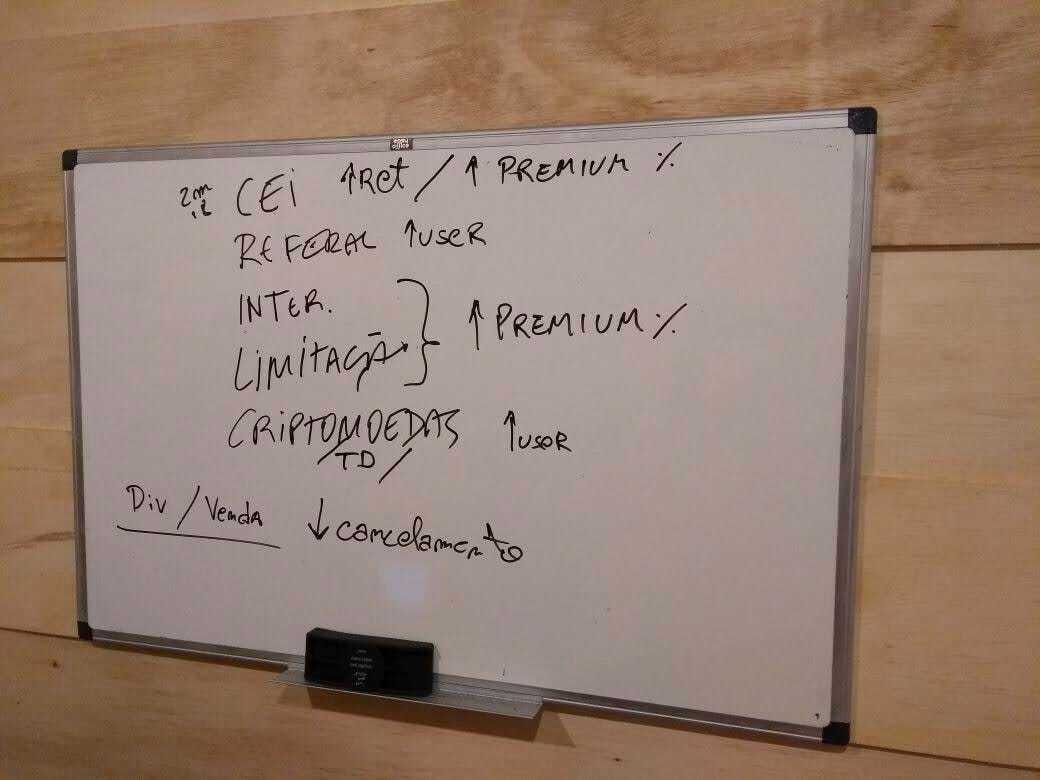 CEi ↑Ret / ↑ PREMIUM %
REFERAL ↑USER
INTER.
LIMITAÇÃO } ↑ PREMIUM %
CRIPTOMOEDAS ↑USER
/TD/
Div / Venda ↓ cancelamento